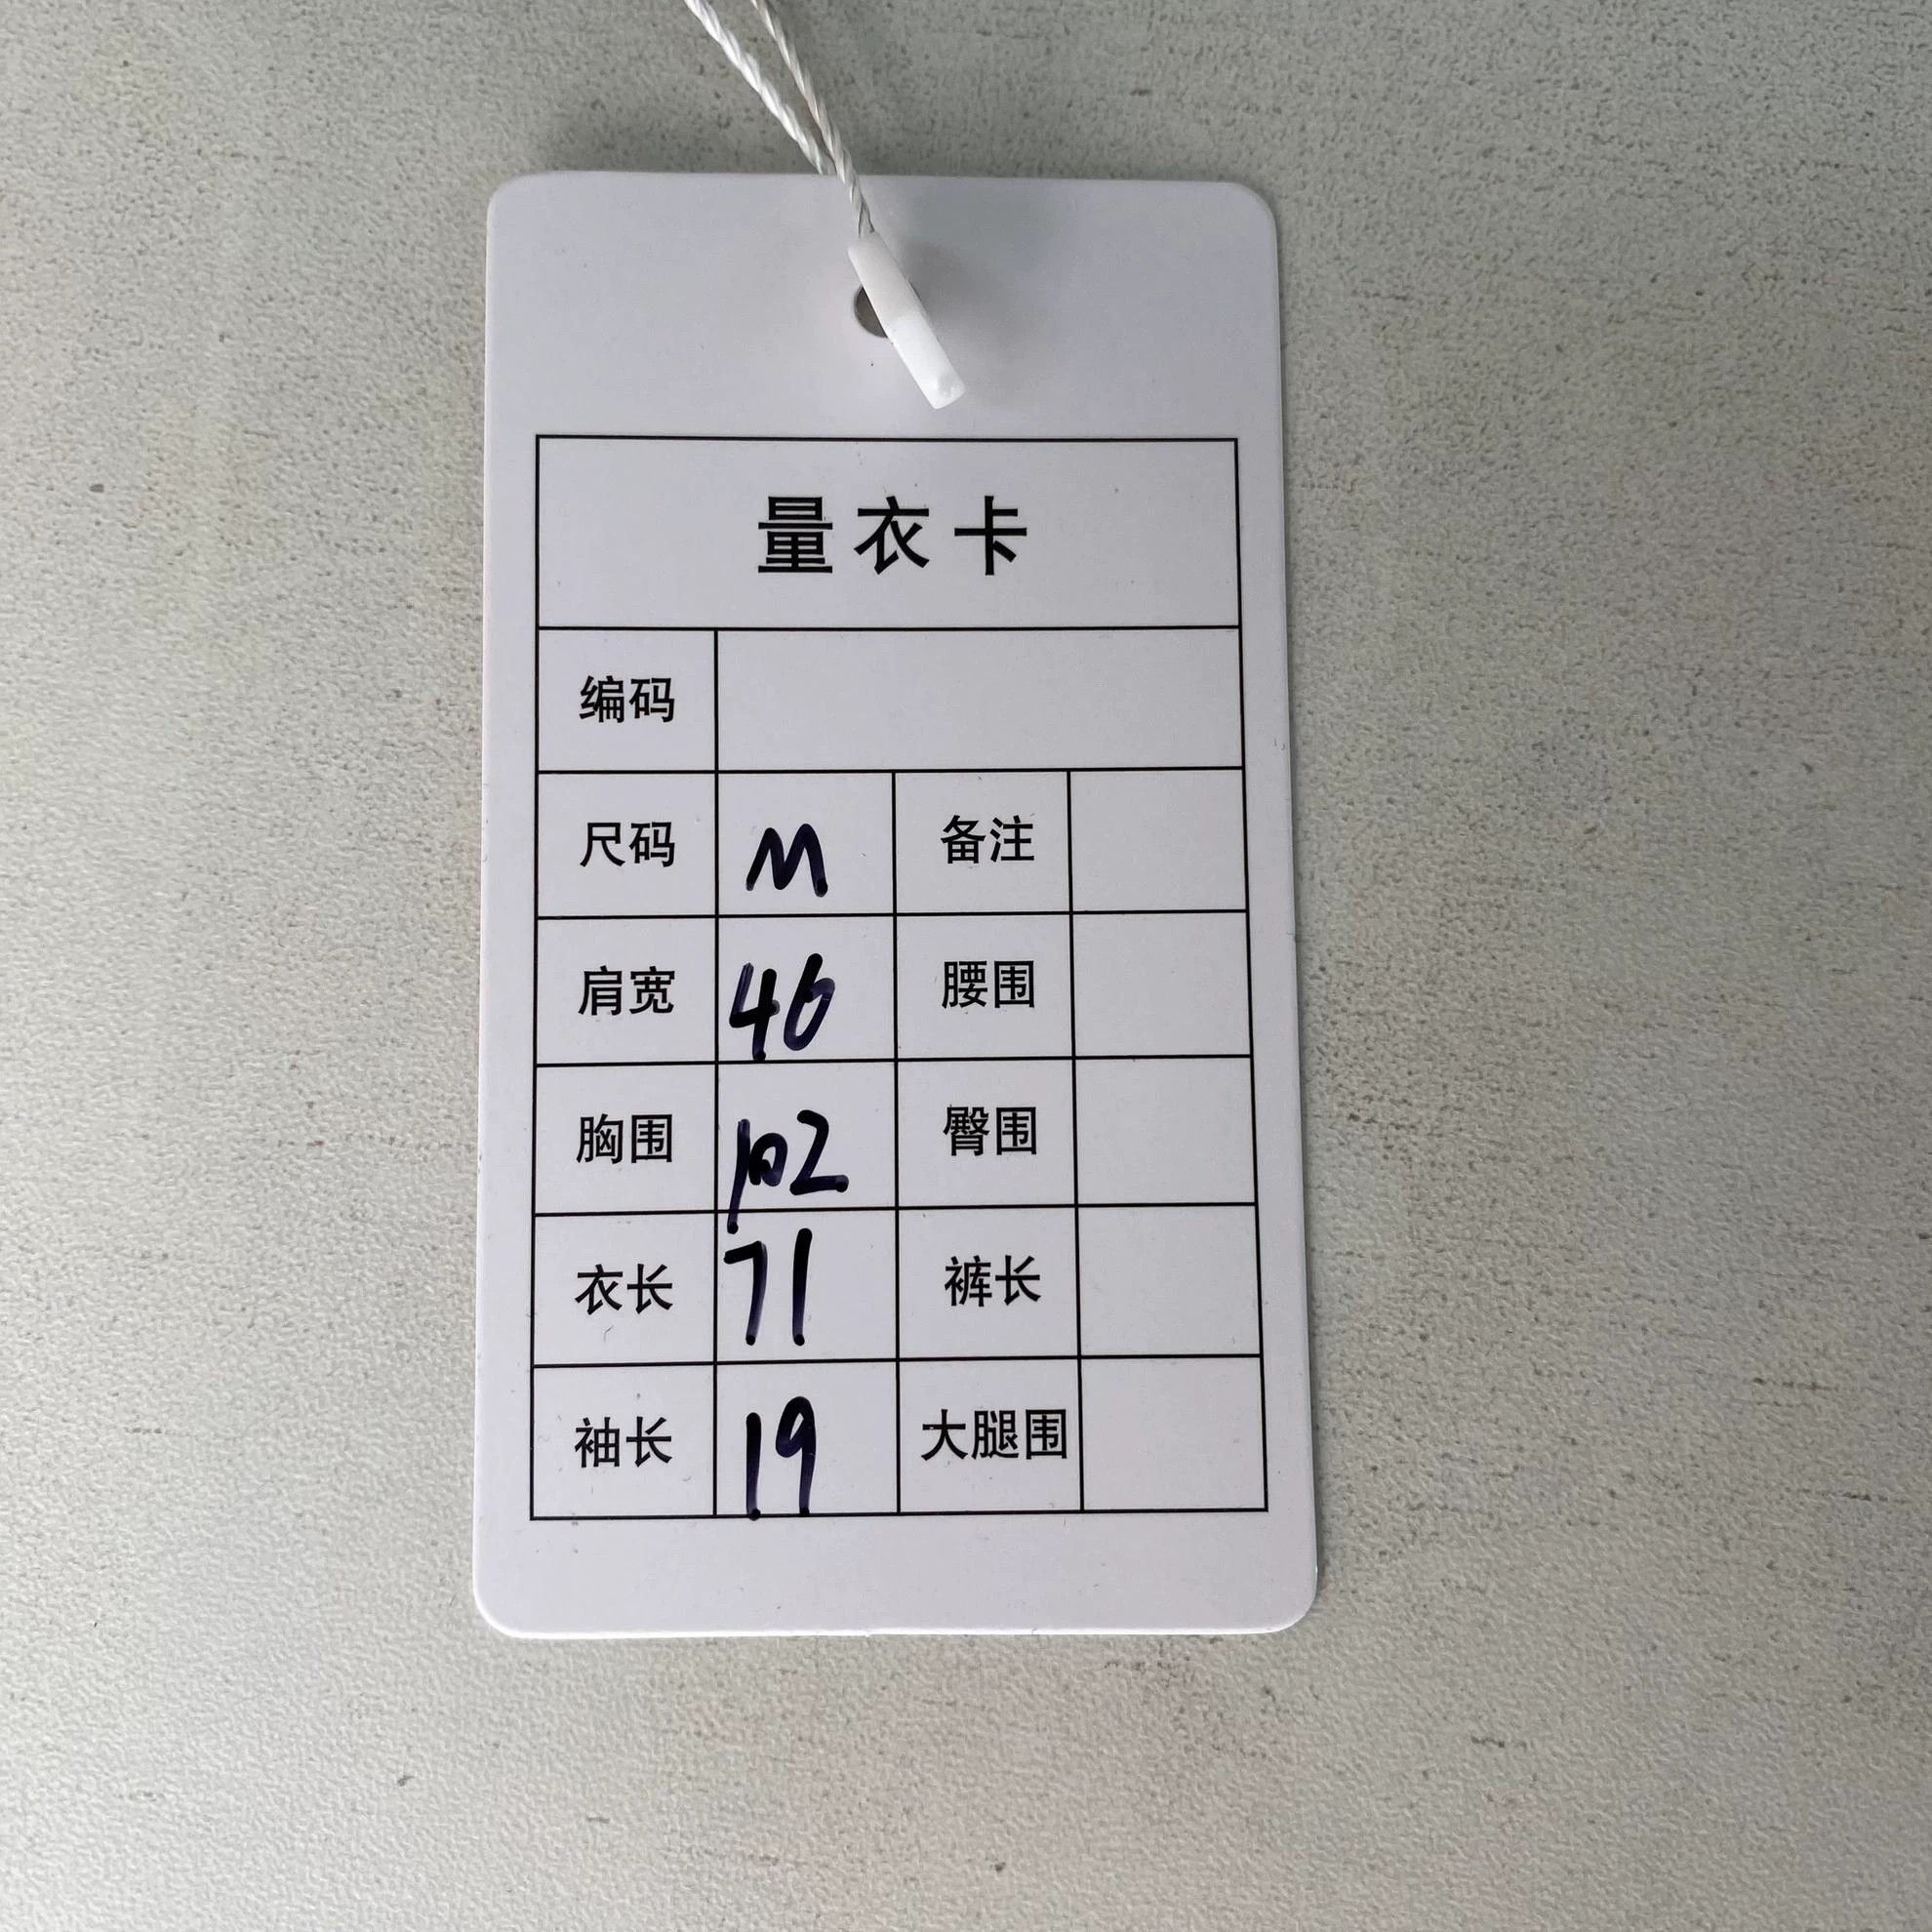 量衣卡
编码
尺码 M 备注
肩宽 46 腰围
胸围 102 臀围
衣长 71 裤长
袖长 19 大腿围